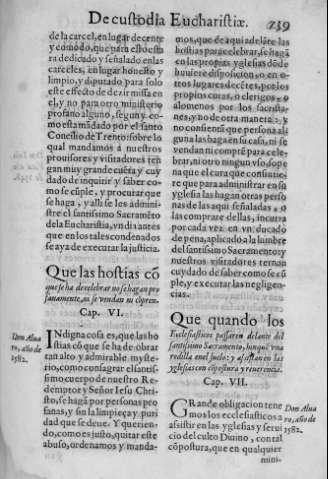 De custodia Eucharistiæ.
239
de la carcel, en lugar decente
y comodo, que para esto esta
ra dedicado y señalado en las
carceles, en lugar honesto y
limpio, y diputado para solo
este effecto de dezir missa en
el, y no para otro ministerio
profano alguno, segun y co-
mo esta mãdado por el santo
Concilio de Trento: sobre lo
qual mandamos à nuestros
prouisores y visitadores ten
gan muy grande cuẽta y cuy
dado de inquirir y saber co-
mo se cũple, y procurar que
se haga, y alli se les admini-
stre el santissimo Sacramẽto
de la Eucharistia, vn dia antes
que en los tales condenados
se aya de executar la justicia.
Que las hostias cõ
que se ha de celebrar no se hagan pro
fanamente, ni se vendan ni cõpren.
Cap. VI.
Don Alua
ro, año de
1582.
INdigna cosa es, que las ho
stias cõ que se ha de obrar
tan alto y admirable myste-
rio, como consagrar el santis-
simo cuerpo de nuestro Re-
demptor y Señor Iesu Chri-
sto, se hagã por personas pro
fanas, y sin la limpieça y puri
dad que se deue. Y querien-
do, como es justo, quitar este
abuso, ordenamos y manda-
mos, que de aqui adelãte las
hostias para celebrar, se hagã
en las propias yglesias dõde
huuiere disposicion, o en o-
tros lugares decẽtes, por los
propios curas, o clerigos, o
alomenos por los sacrista-
nes, y no de otra manera: y
no consentã que persona al-
guna las haga en su casa, ni se
vendan ni comprẽ para cele-
brar, ni otro ningun vso sope
na que el cura que consintie-
re que para administrar en su
yglesia las hagan otras perso
nas de las aqui señaladas, o
las comprare dellas, incurra
por cada vez en vn ducado
de pena, aplicado a la lumbre
del santissimo Sacramento: y
nuestros visitadores ternan
cuydado de saber como se cũ
ple, y executar las negligen-
cias.
Que quando los
Ecclesiasticos passaren delante del
santissimo Sacramento, hinquẽ vna
rodilla en el suelo: y assistan en las
yglesias con cõpostura y reuerencia.
Cap. VII.
GRande obligacion tene
mos los ecclesiasticos a
assistir en las yglesias y serui
cio del culto Diuino, con tal
cõpostura, que en qualquier
Don Alua
ro, año de
1582.
mini-